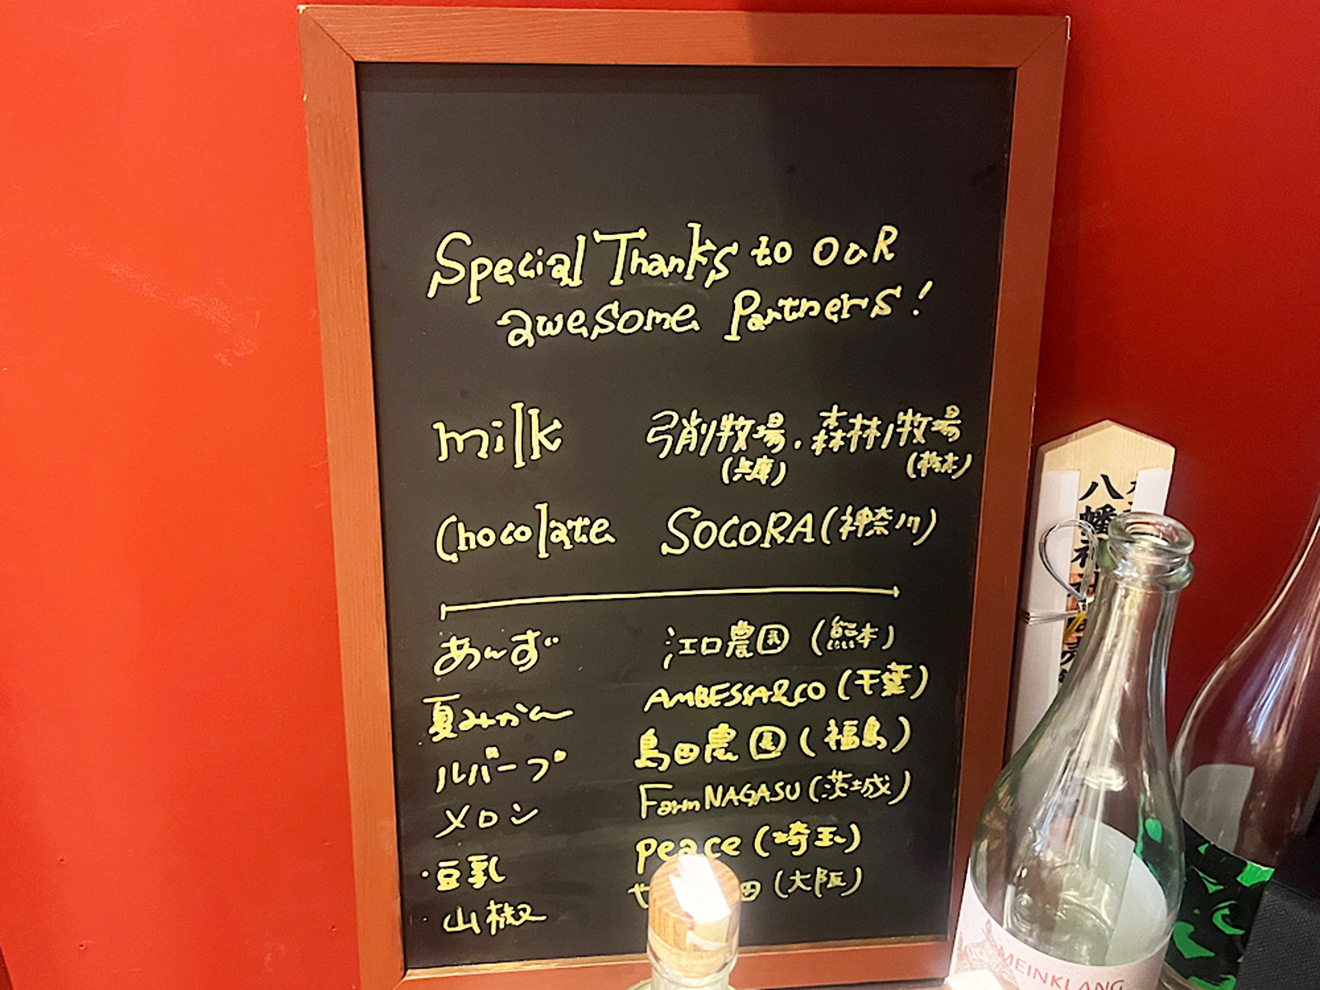 Special Thanks to OuR
awesome Partners!
milk 弓削牧場・森林ノ牧場
(兵庫) (栃木)
Chocolate SOCORA(神奈川)
あんず 江口農園(熊本)
夏みかん AMBESSA&CO(千葉)
ルバーブ 島田農園(福島)
メロン Farm NAGASU(茨城)
・豆乳 peace(埼玉)
・山椒 (大阪)
八幡
MEINKLANG